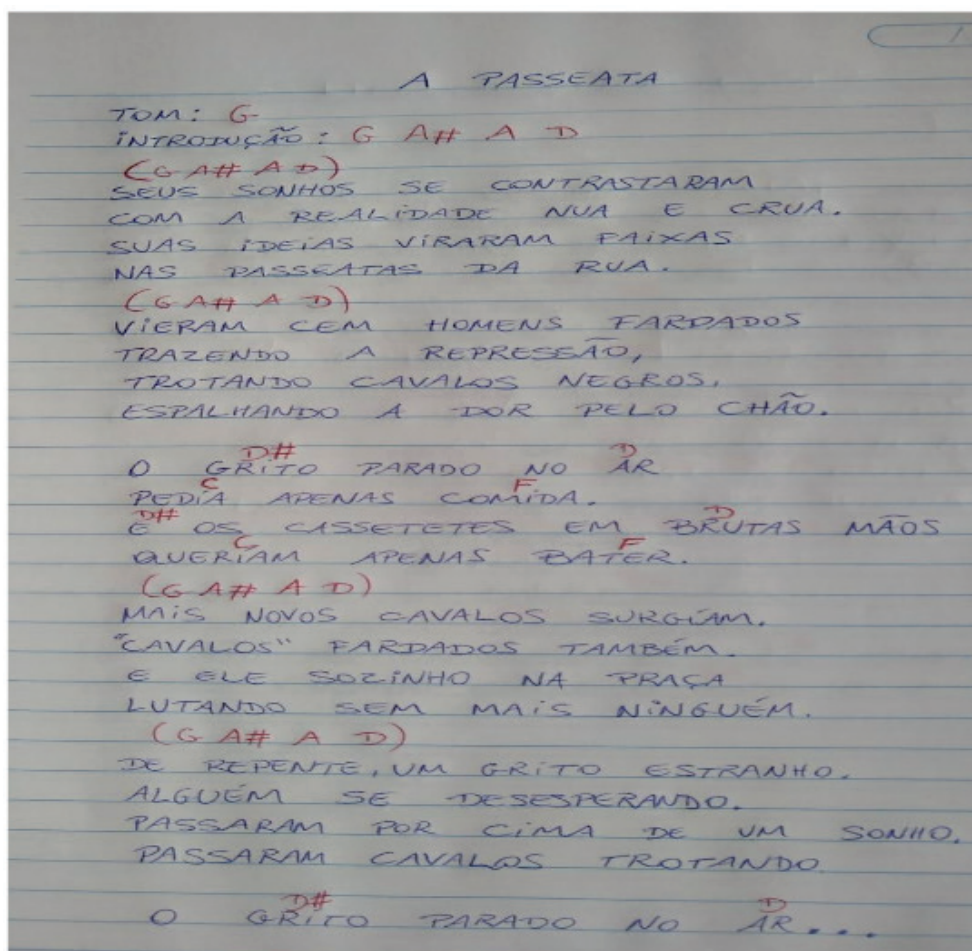 1
A PASSEATA
TOM: G
INTRODUÇÃO: G A# A D
(G A# A D)
SEUS SONHOS SE CONTRASTARAM
COM A REALIDADE NUA E CRUA.
SUAS IDEIAS VIRARAM FAIXAS
NAS PASSEATAS DA RUA.
(G A# A D)
VIERAM CEM HOMENS FARDADOS
TRAZENDO A REPRESSÃO,
TROTANDO CAVALOS NEGROS,
ESPALHANDO A DOR PELO CHÃO.
D# D
O GRITO PARADO NO AR
C F
PEDIA APENAS COMIDA.
D# D
E OS CASSETETES EM BRUTAS MÃOS
C F
QUERIAM APENAS BATER.
(G A# A D)
MAIS NOVOS CAVALOS SURGIAM.
"CAVALOS" FARDADOS TAMBÉM.
E ELE SOZINHO NA PRAÇA
LUTANDO SEM MAIS NINGUÉM.
(G A# A D)
DE REPENTE, UM GRITO ESTRANHO.
ALGUÉM SE DESESPERANDO.
PASSARAM POR CIMA DE UM SONHO.
PASSARAM CAVALOS TROTANDO.
D# D
O GRITO PARADO NO AR...